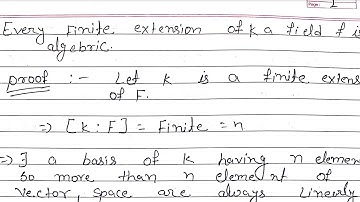 Page: 1
Every Finite extension of k a field f is
algebric.
Proof :- Let k is a finite extens
of F.
=> [k : F] = Finite = n
=> ∃ a basis of k having n elemen
so more than n element of
vector, space are always linearly